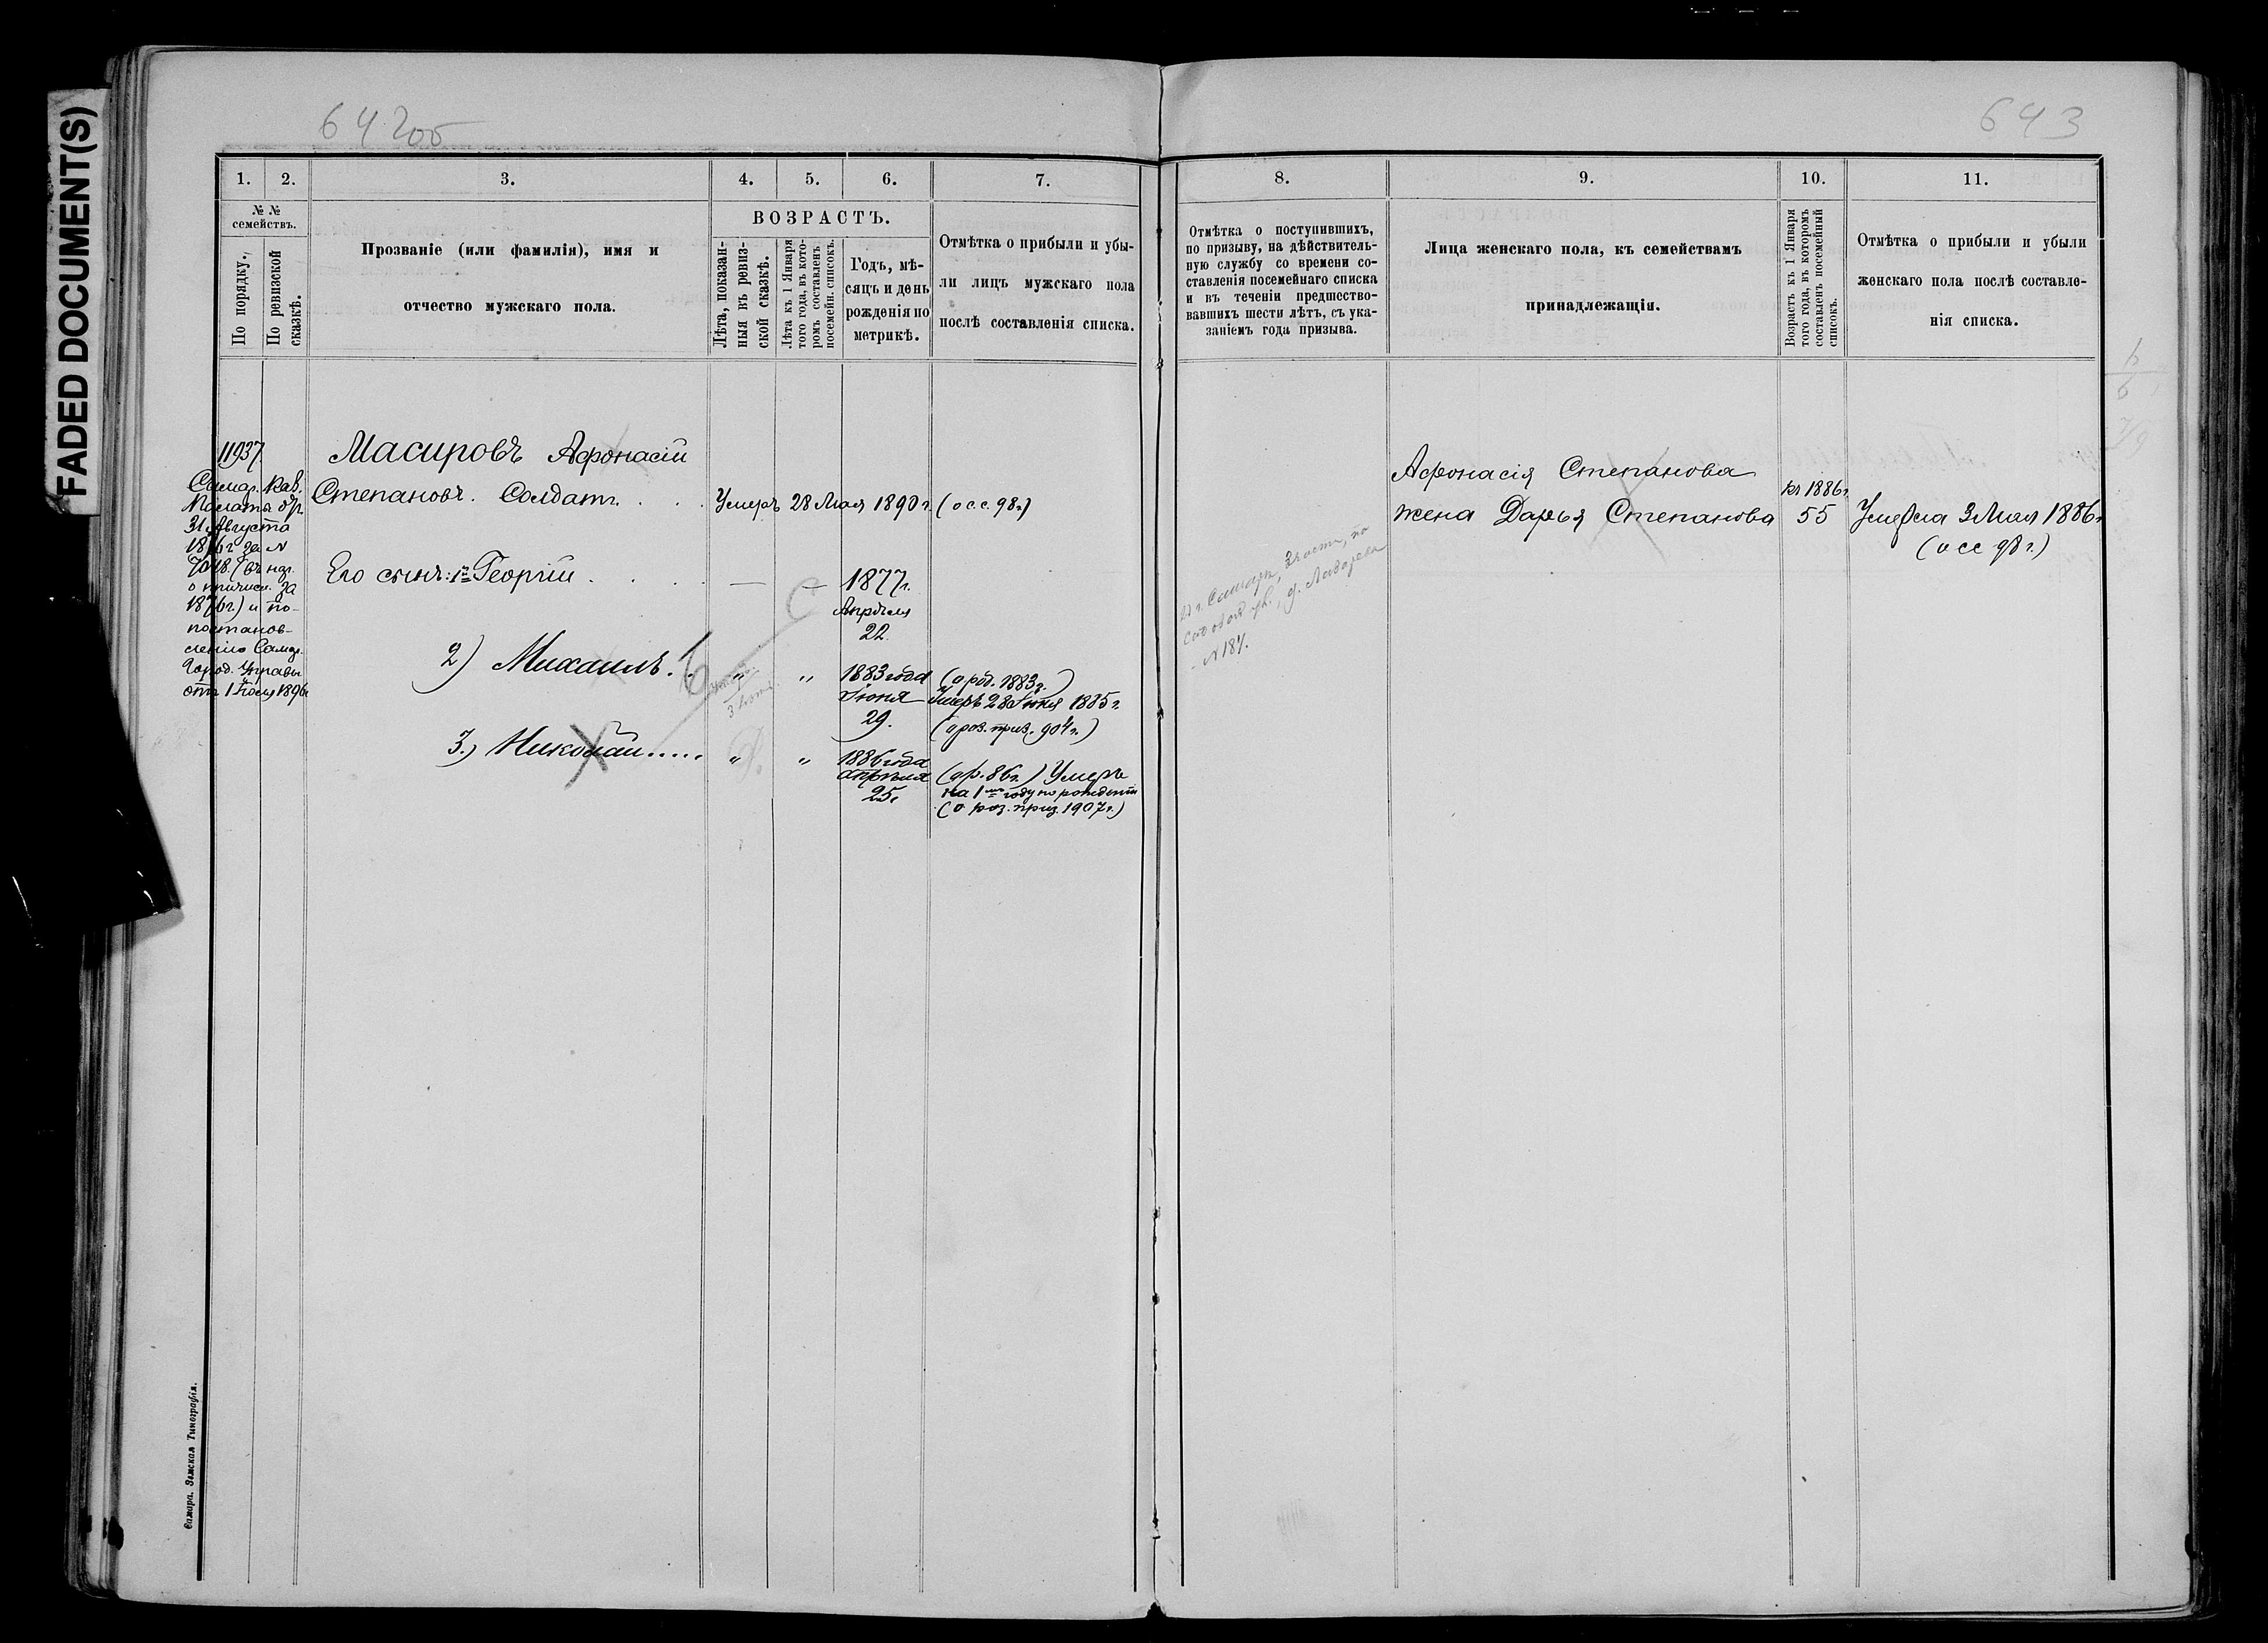 FADED DOCUMENT(S)
642об
643
1.
2.
3.
4.
5.
6.
7.
№ №
семействъ.
По порядку.
По ревизской
сказкѣ.
Прозваніе (или фамилія), имя и
отчество мужскаго пола.
ВОЗРАСТЪ.
Лѣта, показан-
ныя въ ревиз-
ской сказкѣ.
Лѣта къ 1 Января
того года, въ кото-
ромъ составленъ
посемейн. списокъ.
Годъ, мѣ-
сяцъ и день
рожденія по
метрикѣ.
Отмѣтка о прибыли и убы-
ли лицъ мужскаго пола
послѣ составленія списка.
11937
Самар. Каз.
Палаты
31 Августа
1876 г. за №
7048.
о причисл. за
1876 г.) и по-
постанов-
ленію Самар.
Город. Управы
отъ 1896
Масировъ Афонасій
Степановъ. Солдатъ . . . Умеръ 28 Мая 1890 г. (о с с. 98 г.)
Его сынъ: 1й Георгій . . . . — — 1877 г.
Апрѣля
22.
2) Михаилъ . . „ „ 1883 года (о род. 1883 г.)
Іюня Умеръ 28 Іюня 1885 г.
29. (о роз. приз. 904 г.)
3.) Николай..... „ „ 1886 года
апрѣля (о р. 86 г.) Умеръ
25. на 1мъ году по рожденіи
(о роз. приз. 1907 г.)
Самара. Земская Типографія.
8.
9.
10.
11.
Отмѣтка о поступившихъ,
по призыву, на дѣйствитель-
ную службу со времени со-
ставленія посемейнаго списка
и въ теченіи предшество-
вавшихъ шести лѣтъ, съ ука-
заніемъ года призыва.
Лица женскаго пола, къ семействамъ
принадлежащія.
Возрастъ къ 1 Января
того года, въ которомъ
составленъ посемейный
списокъ.
Отмѣтка о прибыли и убыли
женскаго пола послѣ составле-
нія списка.
В г. Самарѣ, 3 части, по
Садовой ул., д. Лазарева
№ 187.
Афонасія Степанова
жена Дарья Степанова
къ 1886 г.
55
Умерла 3 Мая 1886 г.
(о с с 98 г.)